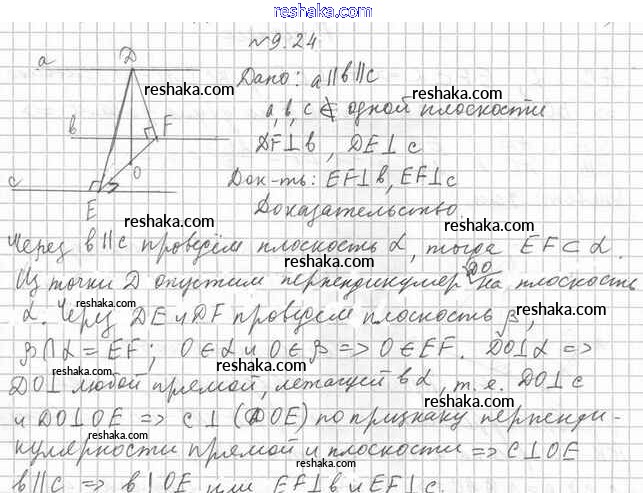 reshaka.com
№9.24
a D Дано: a∥b∥c
reshaka.com reshaka.com
a, b, c ⊄ одной плоскости
b F DF⊥b, DE⊥c
reshaka.com
O
c Док-ть: EF⊥b, EF⊥c
E Доказательство.
reshaka.com
Через b∥c проведём плоскость α, тогда EF⊂α.
reshaka.com
Из точки D опустим перпендикуляр DO на плоскость
reshaka.com reshaka.com
α. Через DE и DF проведём плоскость β,
β∩α = EF; O∈α и O∈β => O∈EF. DO⊥α =>
reshaka.com
DO⊥ любой прямой, лежащей в α, т.е. DO⊥c
reshaka.com reshaka.com
и DO⊥OE => c⊥(DOE) по признаку перпенди-
reshaka.com
кулярности прямой и плоскости => c⊥OE
reshaka.com
b∥c => b⊥OE или EF⊥b и EF⊥c.
reshaka.com